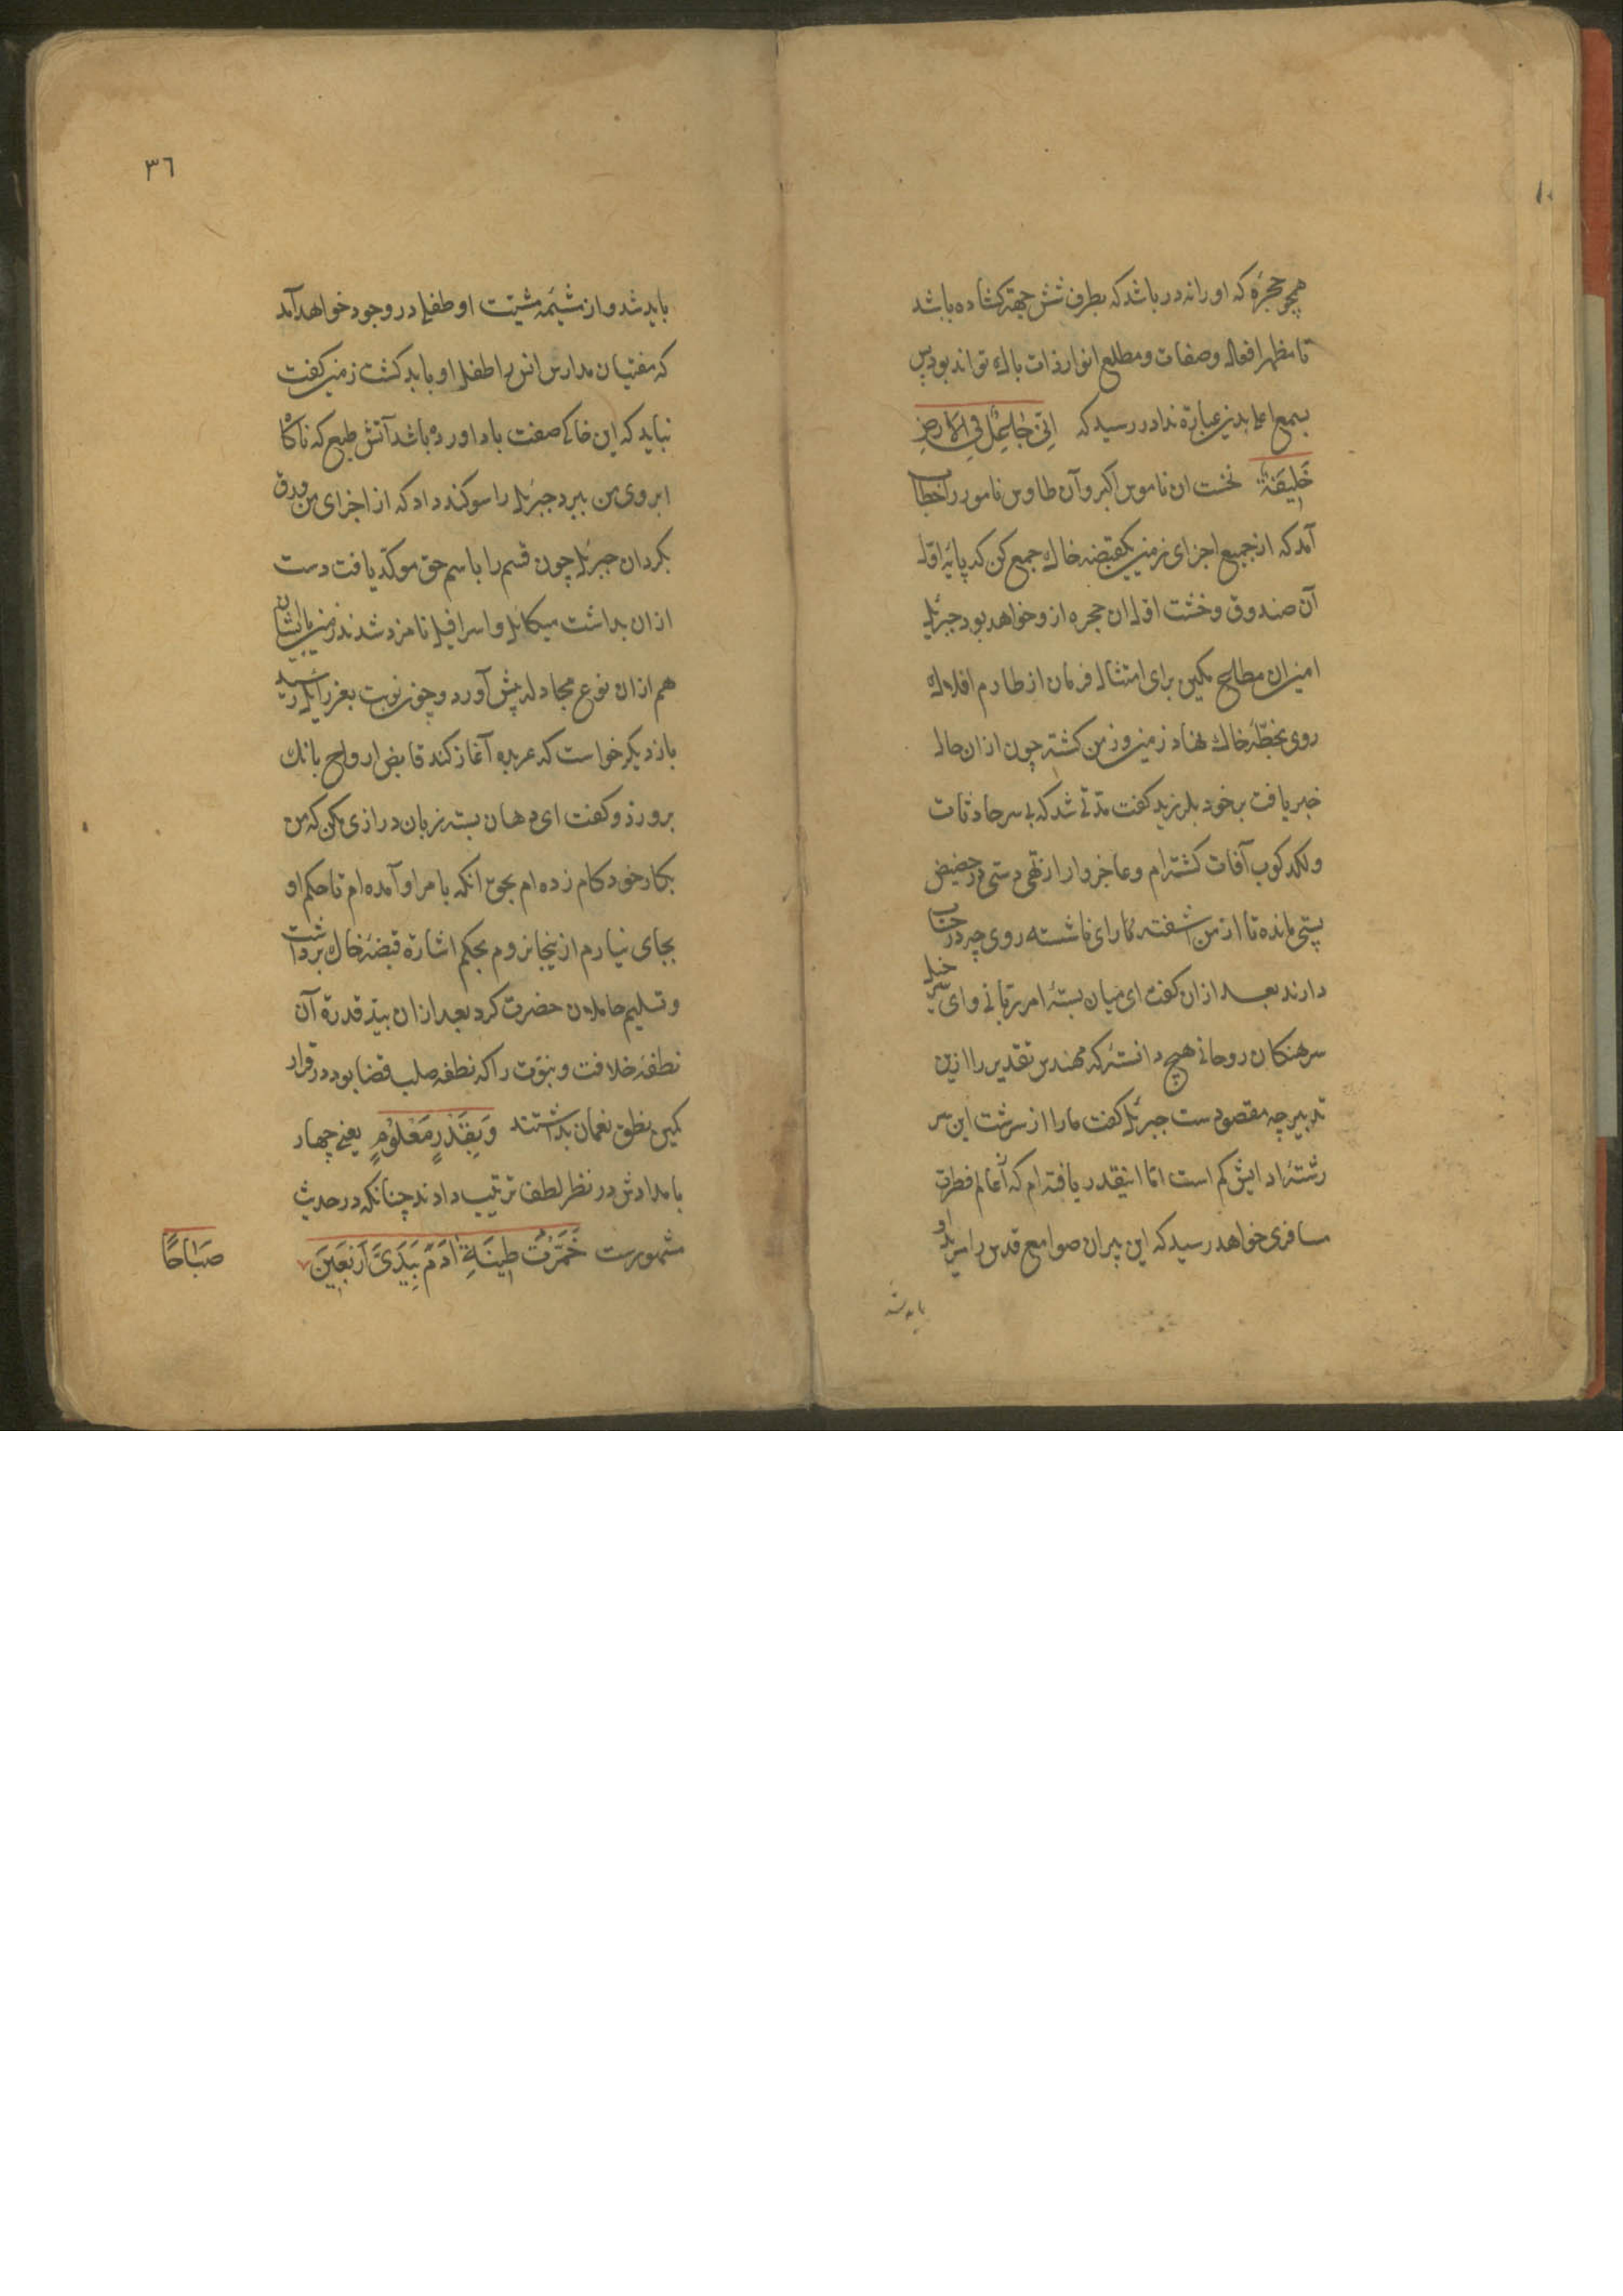 همچو حجرهٔ که او را نه در باشد که بطرف شش جهة کشاده باشد
تا مظهر افعال و صفات و مطلع انوار ذات باك تواند بود پس
بسمع اعلا بدین عبارة ندا در رسید که اِنّی جَاعِلٌ فِی الاَرضِ
خَلِیفَةً نخست ان ناموس اکبر و آن طاوس نامور را خطاب
آمد که از جمیع اجزای زمین یکقبضه خاك جمع کن که پایهٔ اول
آن صندوق و خشت اول ان حجره ازو خواهد بود جبرئیل
امین ان مطاع مکین برای امتثال فرمان از طارم افلاك
روی بخطّهٔ خاك نهاد زمین زمن کشته چون ازان حال
خبر یافت بر خود بلرزید کفت مدّتی شد که بی سر حادثات
و لکد کوب آفات کشته ام و عاجزوار از تهی دستی در حضیض
پستی مانده تا از من اشفته رای ناشسته روی چه در حساب
دارند بعد ازان کفت ای میان بستهٔ امر ربّانی و ای سر خیل
سرهنکان روحانی هیچ دانستهٔ که مهندس تقدیر را ازین
تدبیر چه مقصودست جبرئیل کفت ما را از سرشت این سر
رشتهٔ ادانیش کم است امّا اینقدر یافته ام که از عالم فطرت
مسافری خواهد رسید که این پیران صوامع قدس را مرید او
باید شد
٣٦
باید شد و از مشیمهٔ مشیّت او طفلی در وجود خواهد آمد
که مفتیان مدارس انس را طفل او باید کشت زمین کفت
نباید که این خاکی صفت باد اورد باشد آتش طبع که ناکاه
ابروی من ببرد جبرئیل را سوکند داد که از اجزای من ورق
بکردان جبرئیل چون قسم را باسم حق موکّد یافت دست
ازان بداشت میکائیل و اسرافیل نامزد شدند زمین با ایشان
هم ازان نوع مجادله پیش آورد و چون نوبت بعزرائیل رسید
باز دیکر خواست که عربده آغاز کند قابض ارواح بانك
برو زد و کفت ای دهان بسته زبان درازی مکن که من
بکار خود کام زده ام بحقّ انکه بامر او آمده ام تا حکم او
بجای نیارم ازینجا نروم بحکم اشارة قبضهٔ خاك برداشت
و تسلیم حاملان حضرت کرد بعد ازان بید قدرة آن
نطفهٔ خلافت و نبوّت را که نطفه صلب قضا بود در قرار
مکین بطن نعمان بداشتند وَ بِقَدَرٍ مَعْلُوْمٍ یعنی چهار
بامدادش در نظر لطف ترتیب دادند چنانکه در حدیث
مشهورست خَمَّرْتُ طِینَةِ اٰدَمَ بِیَدَیَّ اَرْبَعِینَ
صَبَاحًا